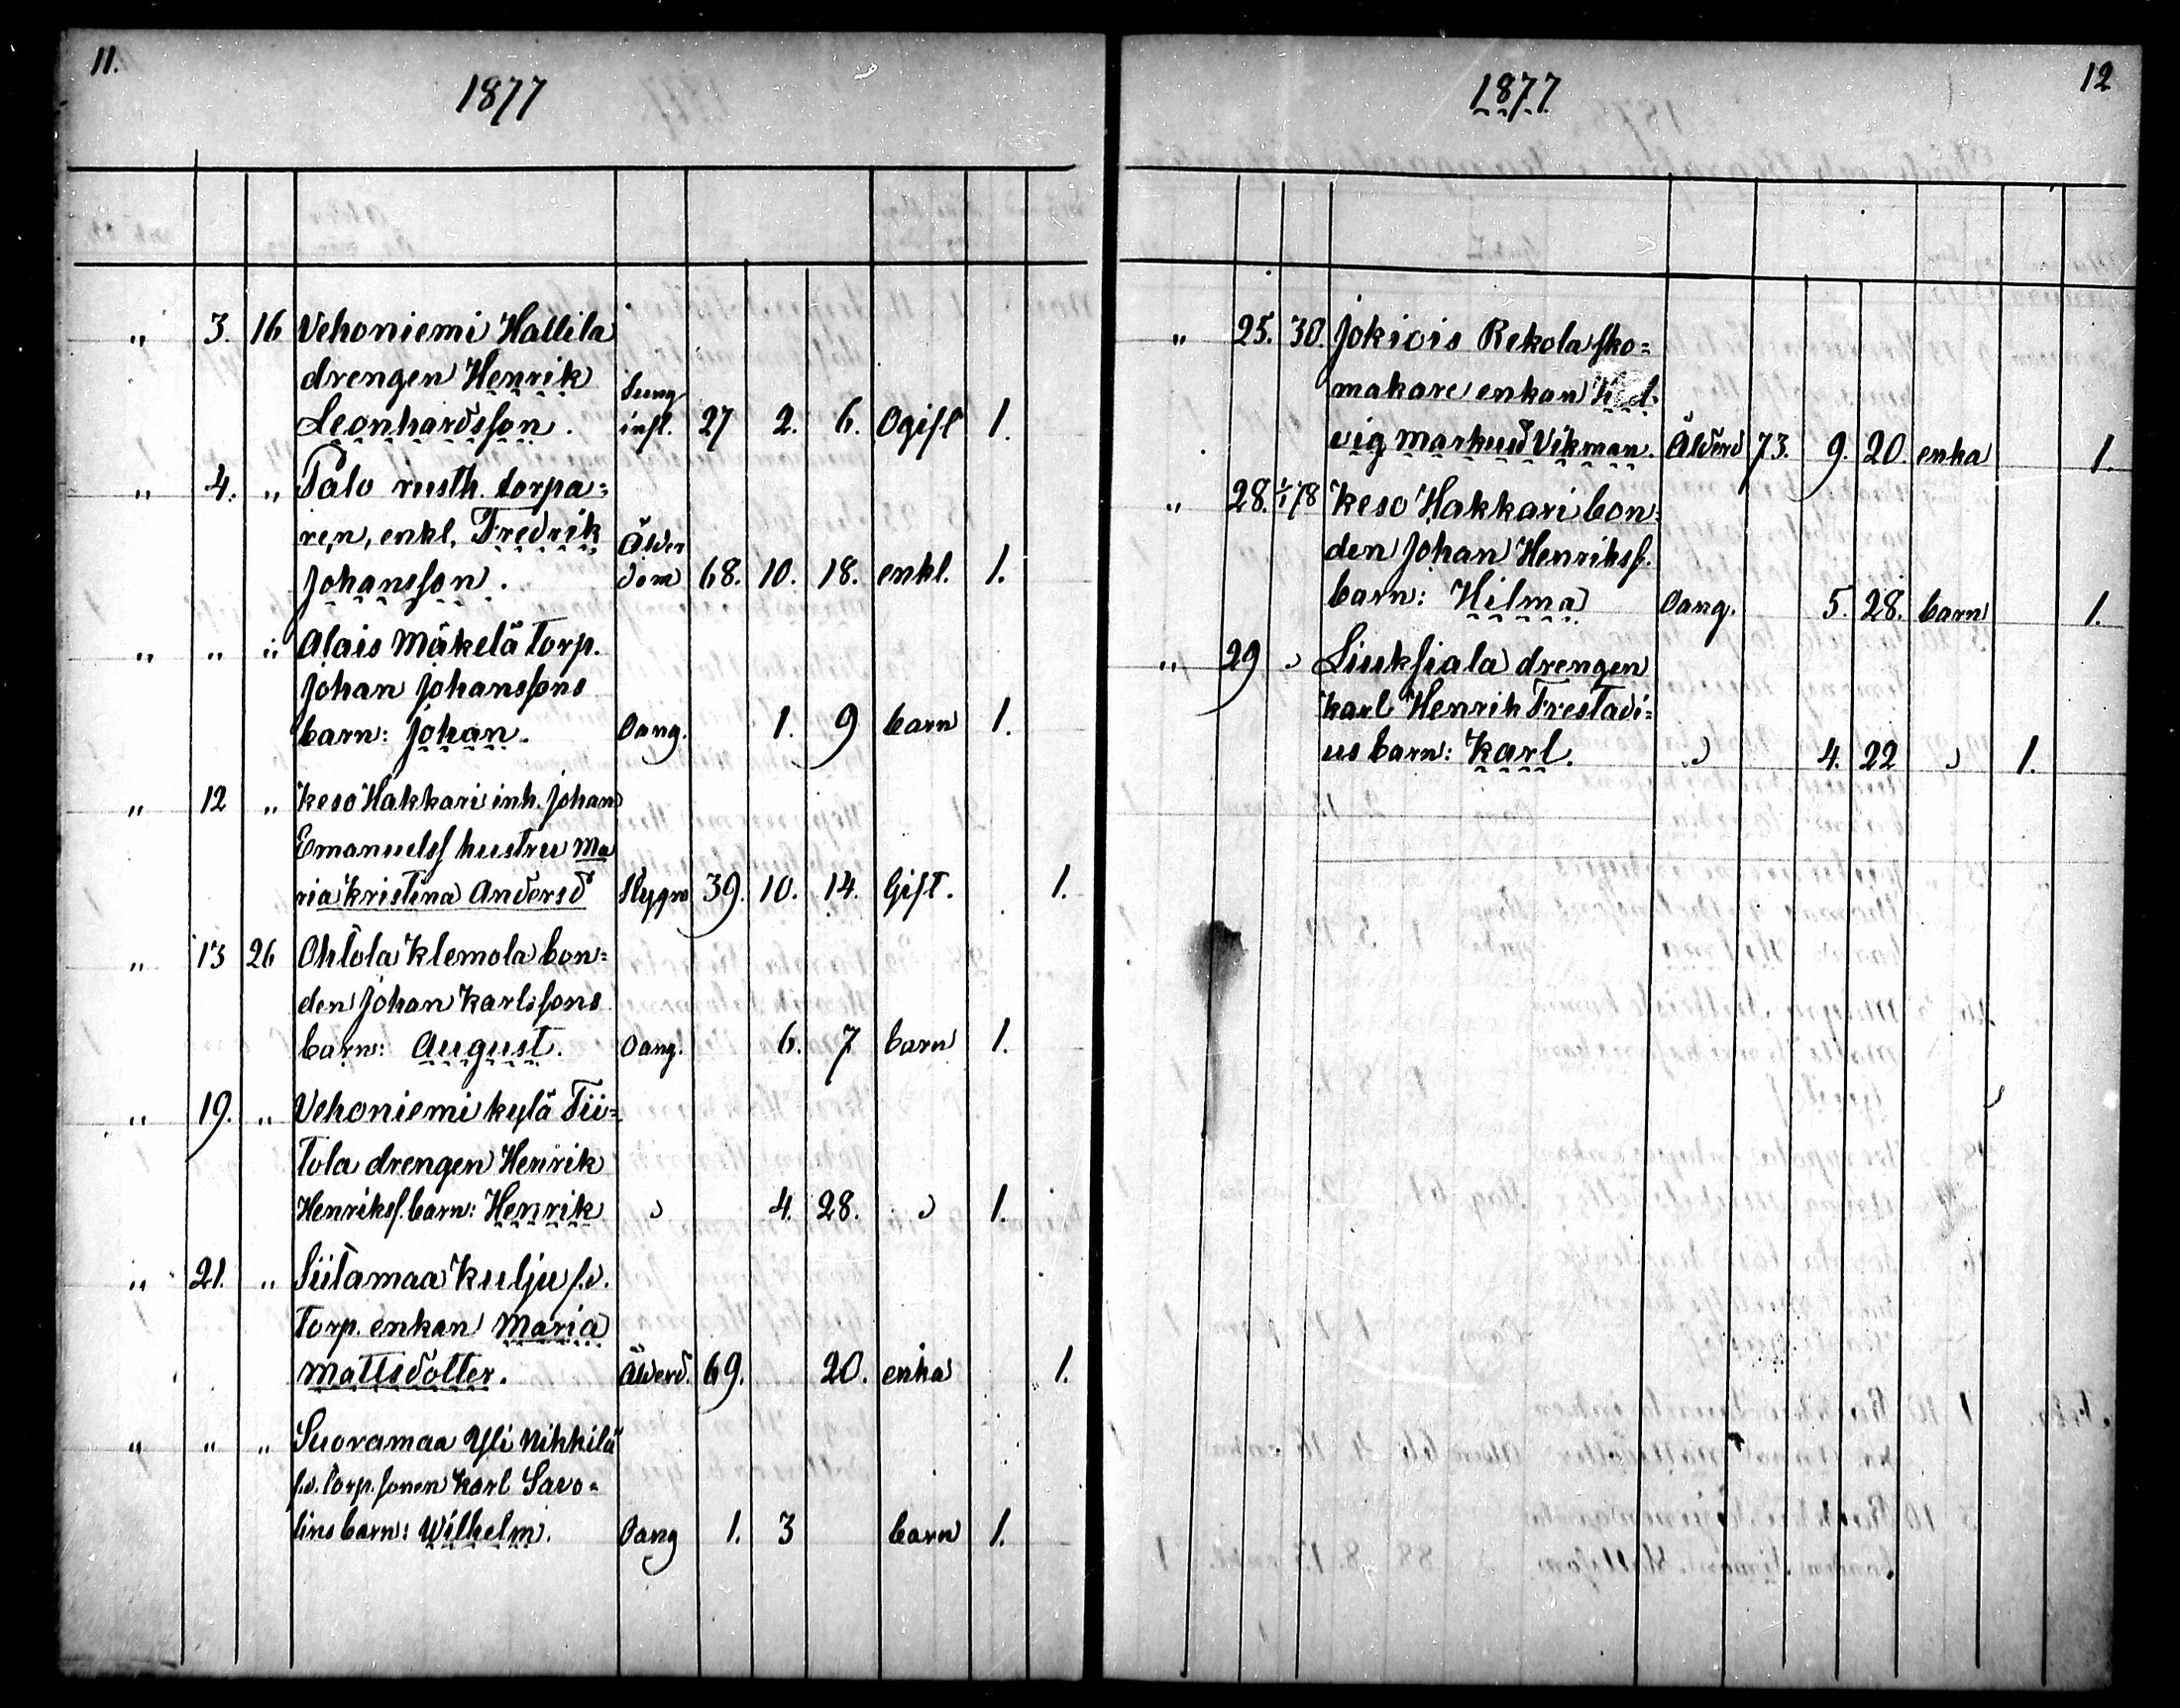 11.
1877
" 3. 16 Vehoniemi Hallila
drengen Henrik Lung
Leonhardsson. infl. 27 2. 6. Ogift 1.
" 4. " Palo rusth. torpa=
ren, enkl. Fredrik Ålder
Johansson. dom 68. 10. 18. enkl. 1.
" " " Alais Mäkelä torp.
Johan Johanssons
barn: Johan. Oang. 1. 9 barn 1.
" 12 " Keso Hakkari inh. Johan
Emanuelss hustru Ma
ria Kristina Andersd 39. 10. 14. Gift. 1.
" 13 26 Ohtola Klemola bon=
den Johan Karlssons
barn: August. Oang. 6. 7 barn 1.
" 19. " Vehoniemi kylä Tii=
tola drengen Henrik
Henrikss. barn: Henrik " 4. 28. " 1.
" 21. " Siitamaa Kulju f.d.
torp. enkan Maria
Mattsdotter. Ålderd. 69. 20. enka 1.
" " " Suoramaa Yli Nikkilä
f.d. torp. sonen Karl Savo=
lins barn: Wilhelm. Oang 1. 3 barn 1.
12
1877
" 25. 30. Jokiois Rekola sko=
makare enkan Hed=
vig Markusd Vikman. Ålderd 73. 9. 20. enka 1.
" 28. 1/1 78 Keso Hakkari bon=
den Johan Henrikss.
barn: Hilma Oang. 5. 28. barn 1.
" 29 " Liuksiala drengen
Karl Henrik Frestadi=
us barn: Karl. " 4. 22 " 1.